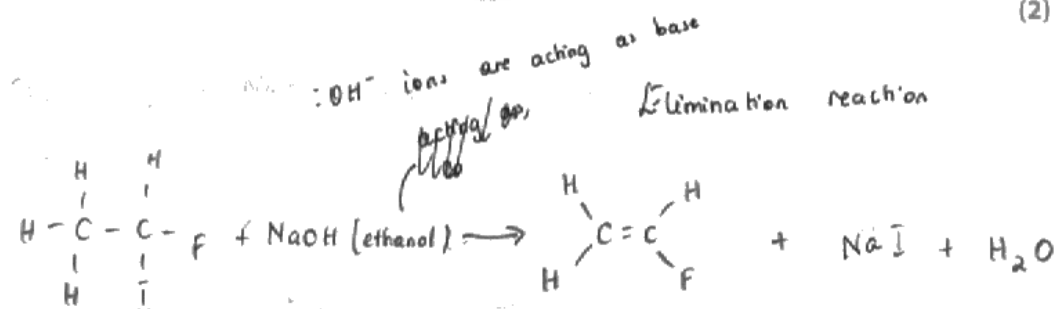 (2)
:OH⁻ ions are acting as base
Elimination reaction
H H H H
H - C - C - F + NaOH (ethanol) → C = C + NaI + H₂O
H I H F